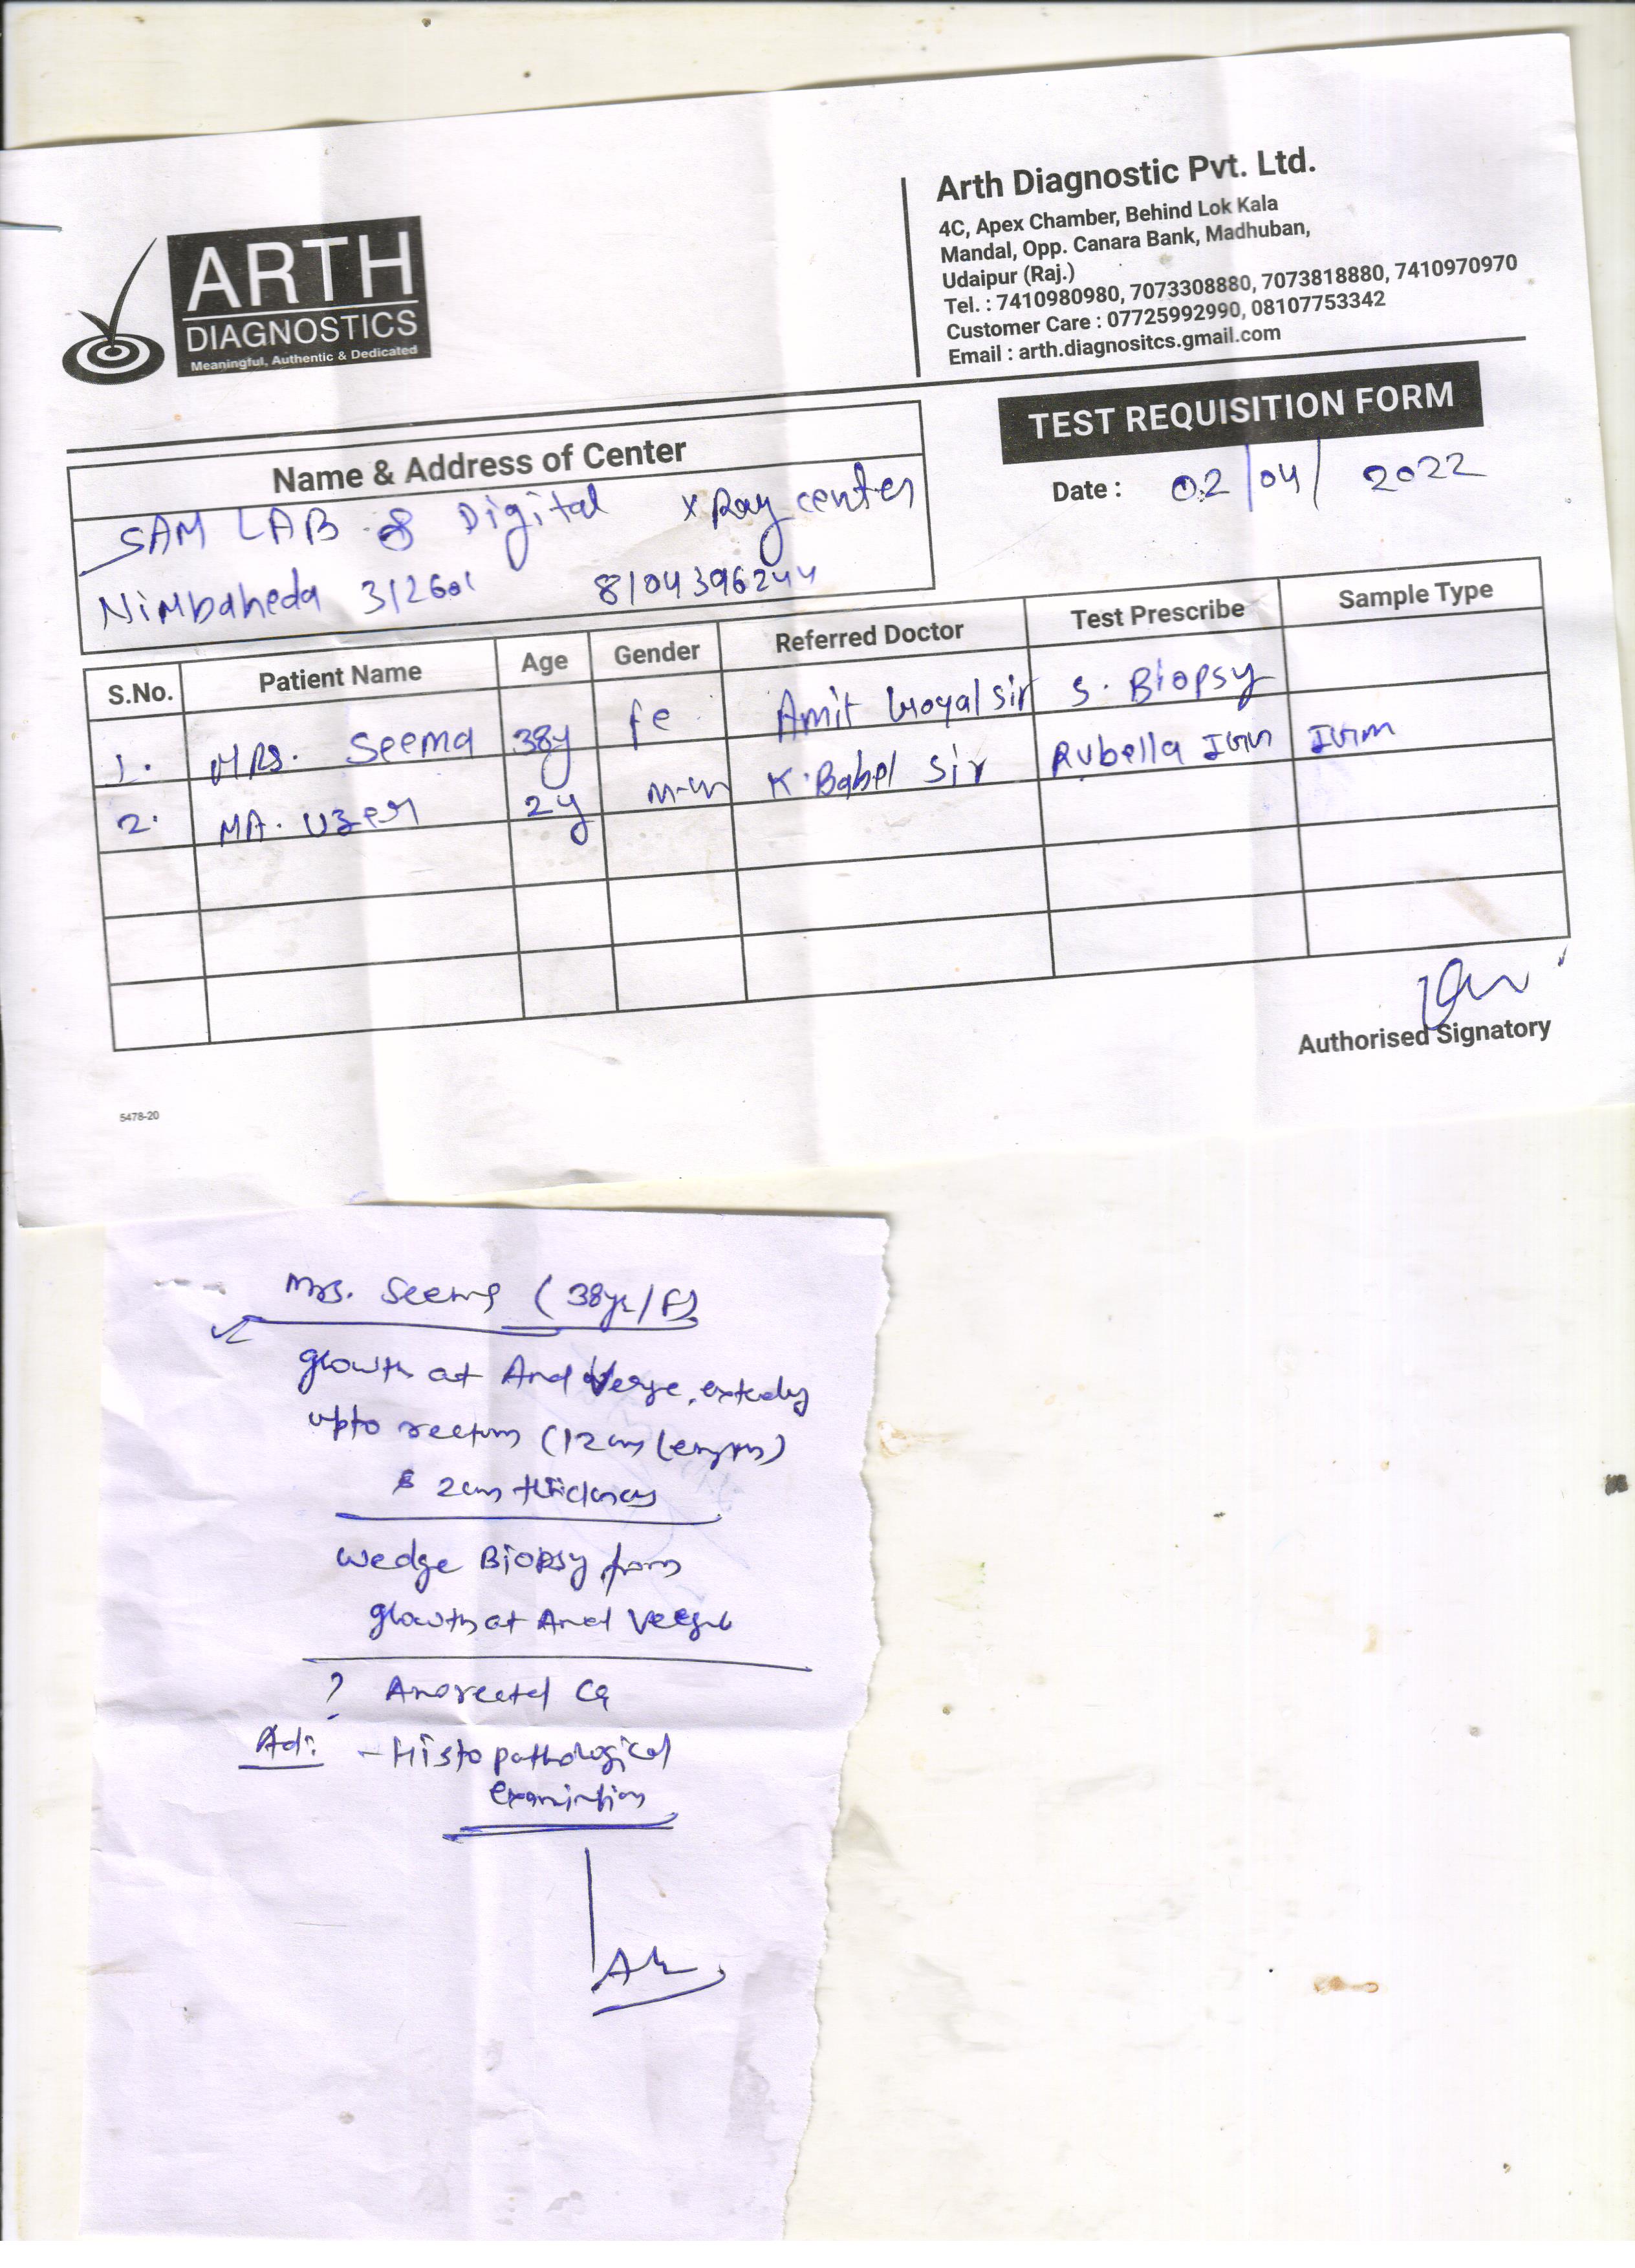 ARTH
DIAGNOSTICS
Meaningful, Authentic & Dedicated
Arth Diagnostic Pvt. Ltd.
4C, Apex Chamber, Behind Lok Kala
Mandal, Opp. Canara Bank, Madhuban,
Udaipur (Raj.)
Tel. : 7410980980, 7073308880, 7073818880, 7410970970
Customer Care : 07725992990, 08107753342
Email : arth.diagnositcs.gmail.com
TEST REQUISITION FORM
Date : 02/04/2022
Name & Address of Center
SAM LAB & Digital X Ray center
Nimbaheda 312601 8104396244
S.No. Patient Name Age Gender Referred Doctor Test Prescribe Sample Type
1. MRS. Seema 38y fe Amit Goyal sir S. Biopsy
2. MA. Uzer 2y K. Babel Sir Rubella IGM IGM
Authorised Signatory
5478-20
Mrs. Seema (38yr/F)
growth at Anal Verge, extending
upto rectum (12cm length)
& 2cm thickness
wedge Biopsy from
growth at Anal Verge
? Anorectal Ca
Adv. - Histopathological
examination